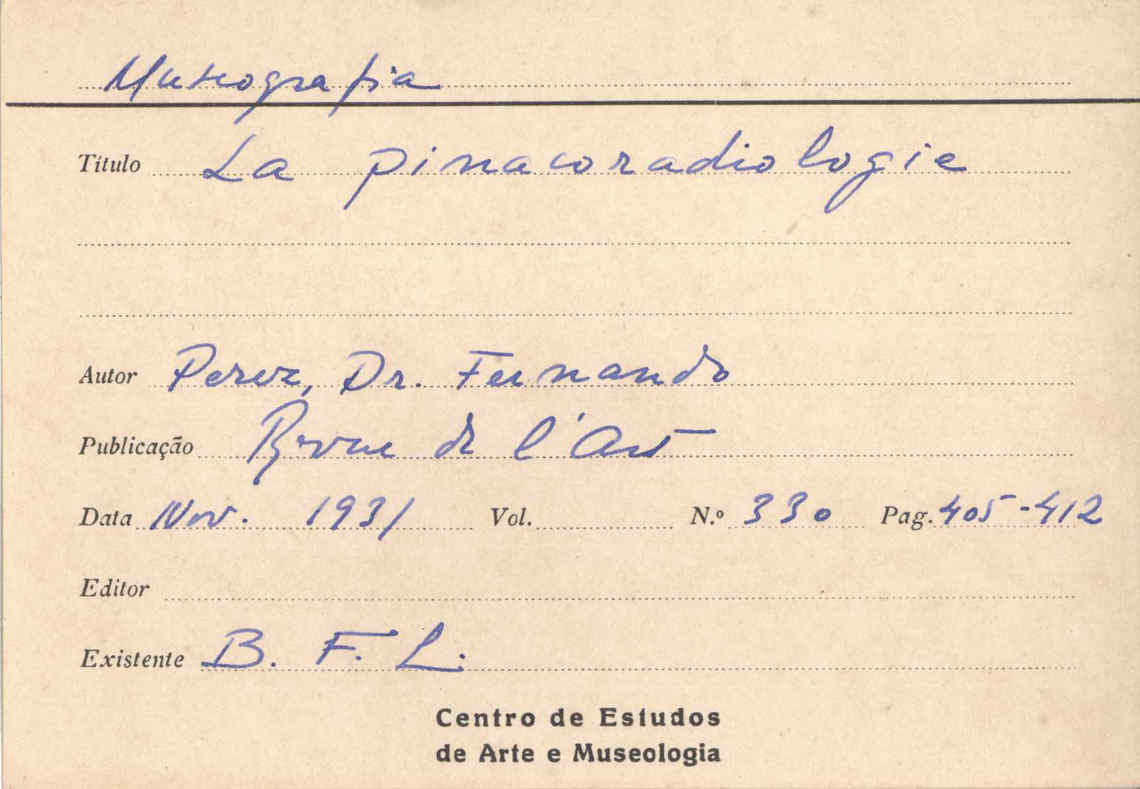 Museografia
Título La pinacoradiologie
Autor Perez, Dr. Fernando
Publicação Revue de l'Art
Data Nov. 1931 Vol. N.º 330 Pag. 405-412
Editor
Existente B. F. L.
Centro de Estudos
de Arte e Museologia